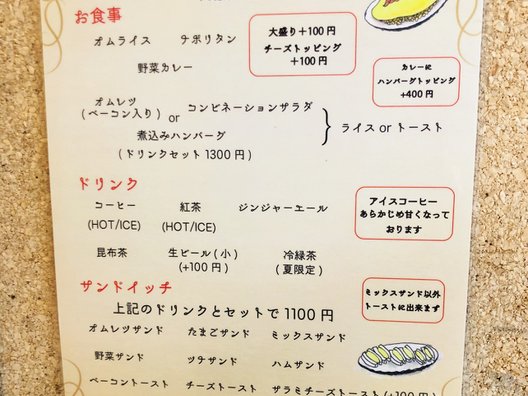 お食事
大盛り+100円
チーズトッピング
+100円
オムライス ナポリタン
野菜カレー
カレーに
ハンバーグトッピング
+400円
オムレツ
(ベーコン入り) or コンビネーションサラダ
煮込みハンバーグ
ライス or トースト
(ドリンクセット 1300 円)
ドリンク
コーヒー 紅茶 ジンジャーエール
(HOT/ICE) (HOT/ICE)
アイスコーヒー
あらかじめ甘くなって
おります
昆布茶 生ビール(小) 冷緑茶
(+100 円) (夏限定)
サンドイッチ
上記のドリンクとセットで 1100 円
ミックスサンド以外
トーストに出来ます
オムレツサンド たまごサンド ミックスサンド
野菜サンド ツナサンド ハムサンド
ベーコントースト チーズトースト サラミチーズトースト(+100円)